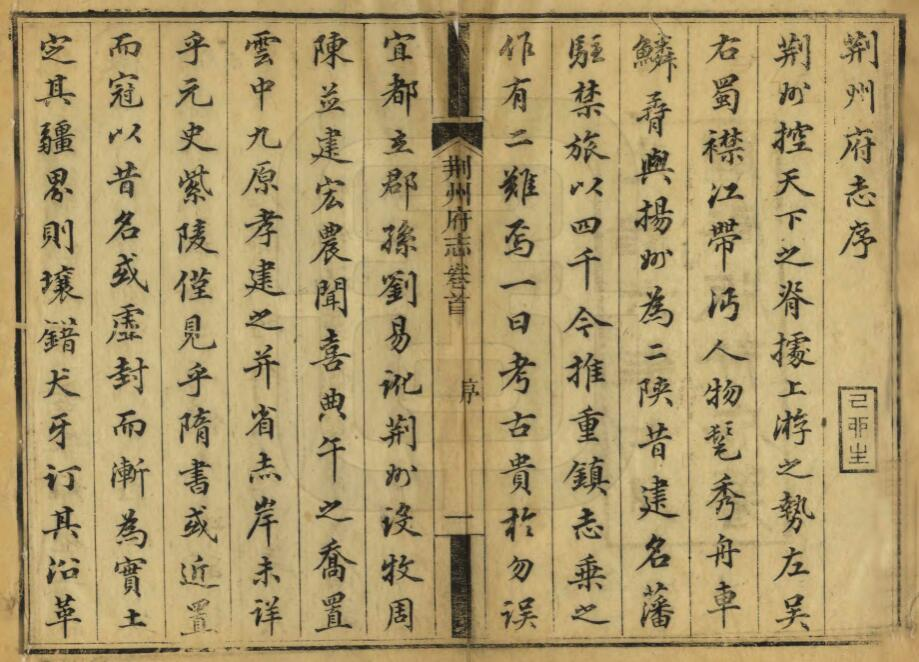 荆州府志序
己卯生
荆州控天下之脊據上游之勢左吴
右蜀襟江帶沔人物髦秀舟車
鱗脊與揚州為二陝昔建名藩
駐禁旅以四千今推重鎮志乘之
作有二難焉一曰考古貴於勿误
荆州府志卷首
序
一
宜都立郡孫劉易訛荆州设牧周
陳並建宏農聞喜典午之喬置
雲中九原孝建之并省赤岸未详
乎元史紫陵僅見乎隋書或近置
而冠以昔名或虛封而漸為實土
定其疆界則壤錯犬牙订其沿革